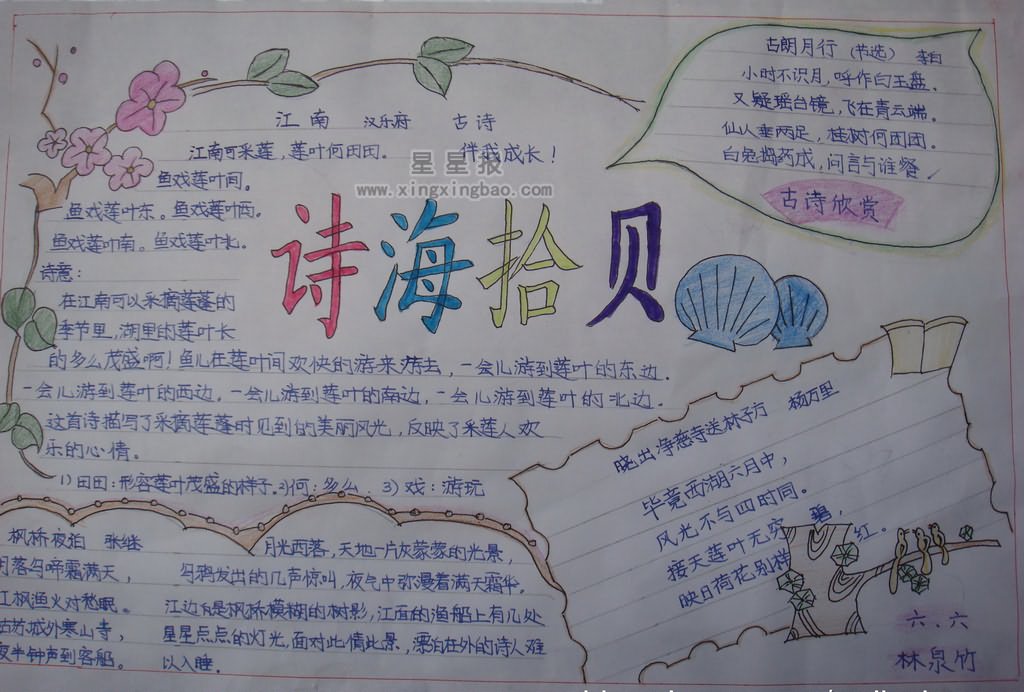 江南 汉乐府 古诗
江南可采莲，莲叶何田田。 伴我成长！
鱼戏莲叶间。
鱼戏莲叶东。鱼戏莲叶西。
鱼戏莲叶南。鱼戏莲叶北。
诗意：
在江南可以采摘莲蓬的
季节里，湖里的莲叶长
的多么茂盛啊！鱼儿在莲叶间欢快的游来游去，一会儿游到莲叶的东边.
一会儿游到莲叶的西边，一会儿游到莲叶的南边，一会儿游到莲叶的北边.
这首诗描写了采摘莲蓬时见到的美丽风光，反映了采莲人欢
乐的心情。
1）田田：形容莲叶茂盛的样子.2)何：多么 3）戏：游玩
星星报
www.xingxingbao.com
诗海拾贝
古朗月行（节选） 李白
小时不识月，呼作白玉盘.
又疑瑶台镜，飞在青云端.
仙人垂两足，桂树何团团.
白兔捣药成，问言与谁餐
古诗欣赏
晓出净慈寺送林子方 杨万里
毕竟西湖六月中，
风光不与四时同。
接天莲叶无穷碧，
映日荷花别样红。
枫桥夜泊 张继
月落乌啼霜满天，
江枫渔火对愁眠。
姑苏城外寒山寺，
夜半钟声到客船。
月光西落，天地一片灰蒙蒙的光景，
乌鸦发出的几声惊叫，夜气中弥漫着满天霜华。
江边是枫桥模糊的树影，江面的渔船上有几处
星星点点的灯光，面对此情此景，漂泊在外的诗人难
以入睡。
六．六
林泉竹